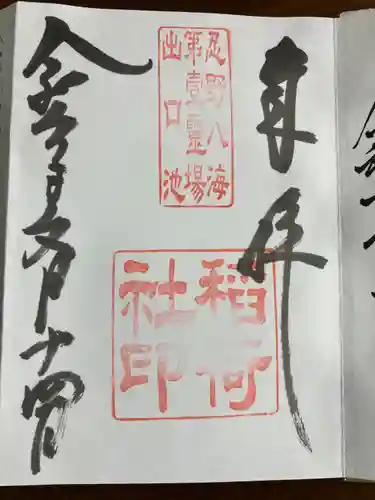 奉拝
忍野八海
第壹靈場
出口池
稲荷
社印
令和 年 月十四日